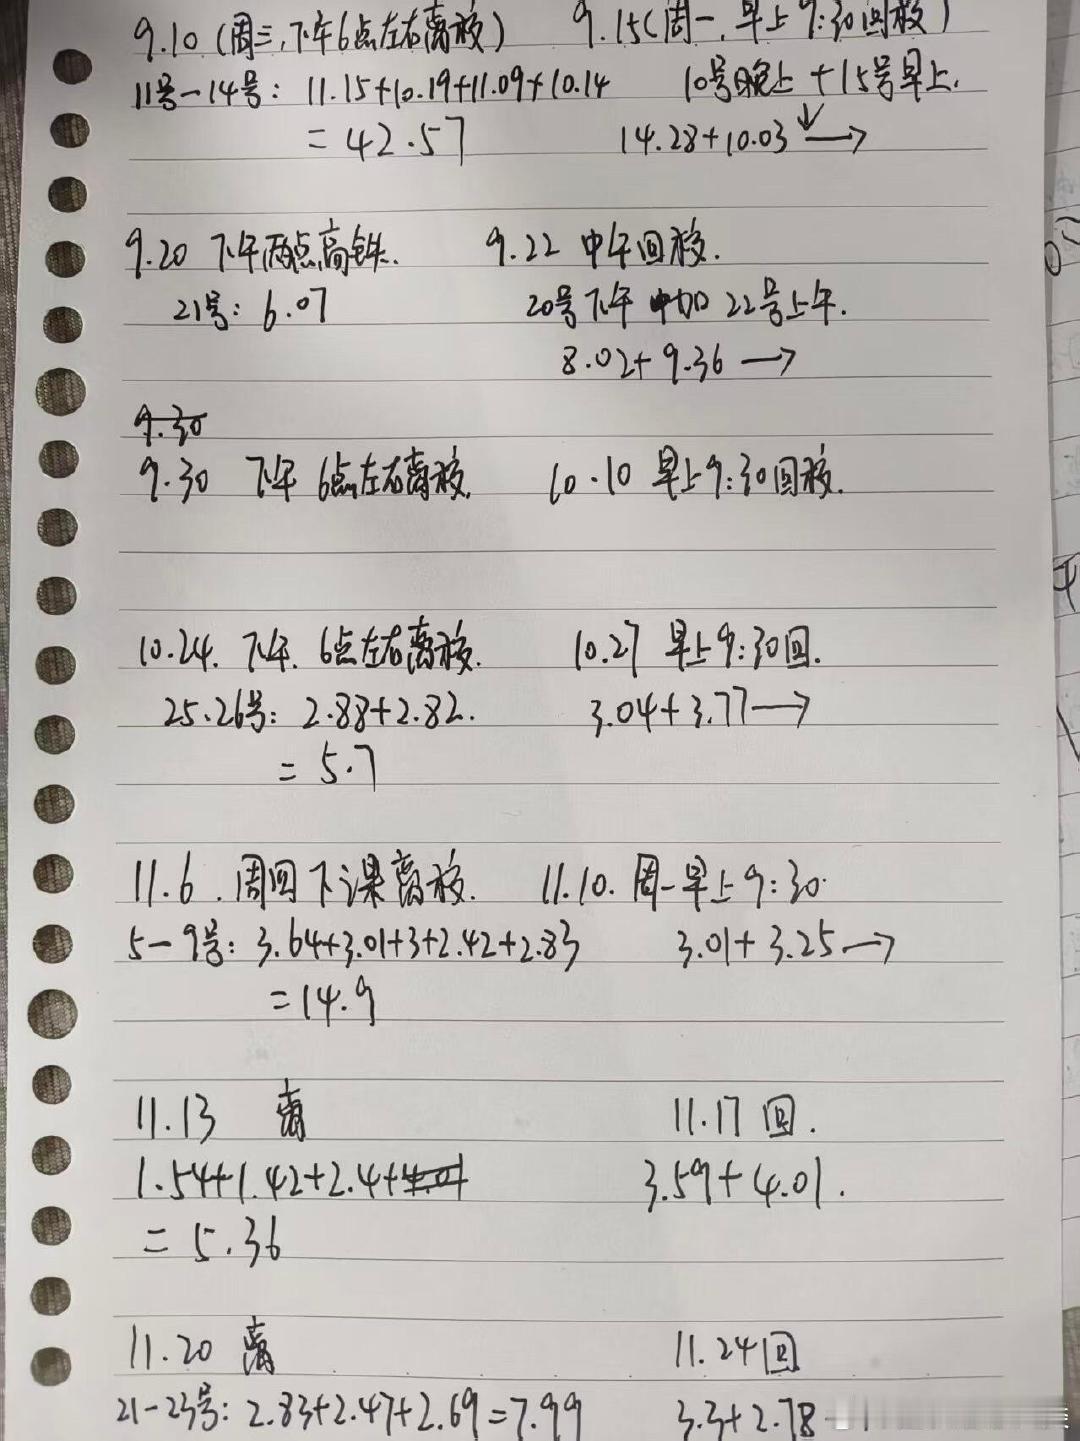 9.10（周三，下午6点左右离校） 9.15（周一，早上9:30回校）
11号一14号：11.15+10.19+11.09+10.14 10号晚上+15号早上.
=42.57 14.28+10.03→
9.20 下午两点高铁. 9.22 中午回校.
21号：6.07 20号下午加22号上午.
8.02+9.36→
9.30
9.30 下午6点左右离校. 10.10 早上9:30回校.
10.24. 下午.6点左右离校. 10.27 早上9:30回.
25.26号：2.88+2.82. 3.04+3.77→
=5.7
11.6.周四下课离校. 11.10.周一早上9:30.
5一9号：3.64+3.01+3+2.42+2.83 3.01+3.25→
=14.9
11.13 离 11.17回.
1.54+1.42+2.4+4.01 3.59+4.01.
=5.36
11.20 离 11.24回
21-23号：2.83+2.47+2.69=7.99 3.3+2.78